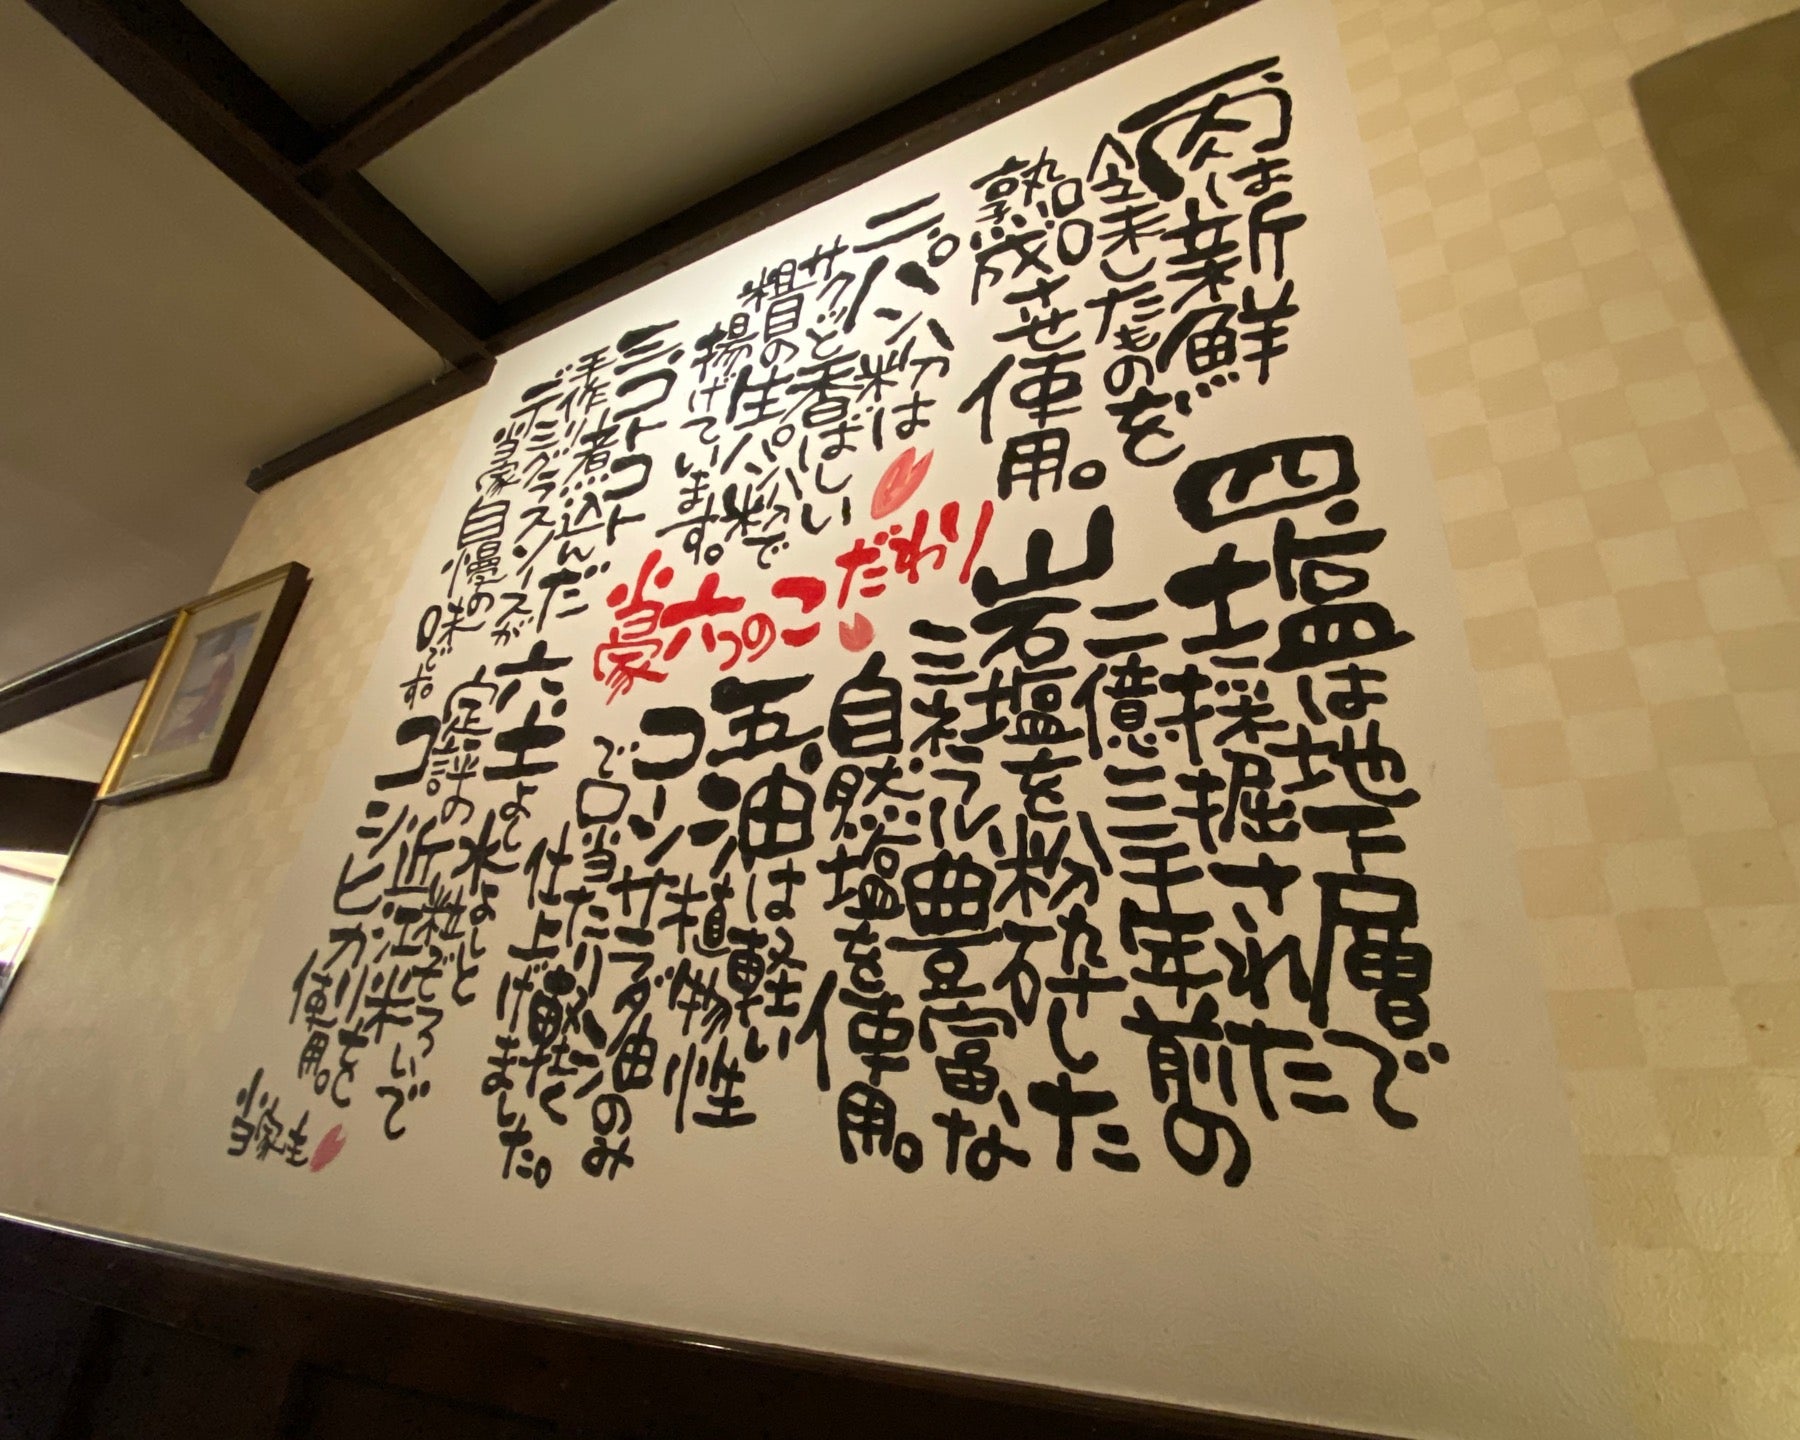 肉は新鮮
したものを
熟成させ使用。
二。パン粉は
サクッと香ばしい
粗目の生パン粉で
揚げています。
三。コトコト
手作り煮込んだ
デミグラスソースが
当家自慢の味です。
当家六つのこだわり
四。塩は地下層で
採掘された
二億三千年前の
岩塩を粉砕した
ミネラル豊富な
自然塩を使用。
五。油は軽い
植物性
コーンサラダ油のみ
で口当たり軽く
仕上げました。
六。土よし水よしと
定評の近江米
粒ぞろいで
コシヒカリを
使用。
当家主